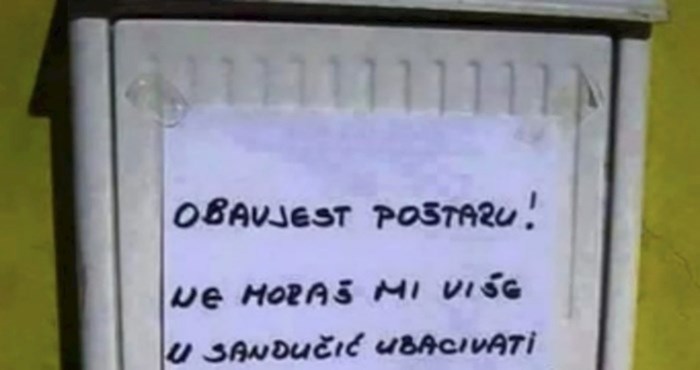 OBAVJEST POŠTARU!
NE MORAŠ MI VIŠE
U SANDUČIĆ UBACIVATI